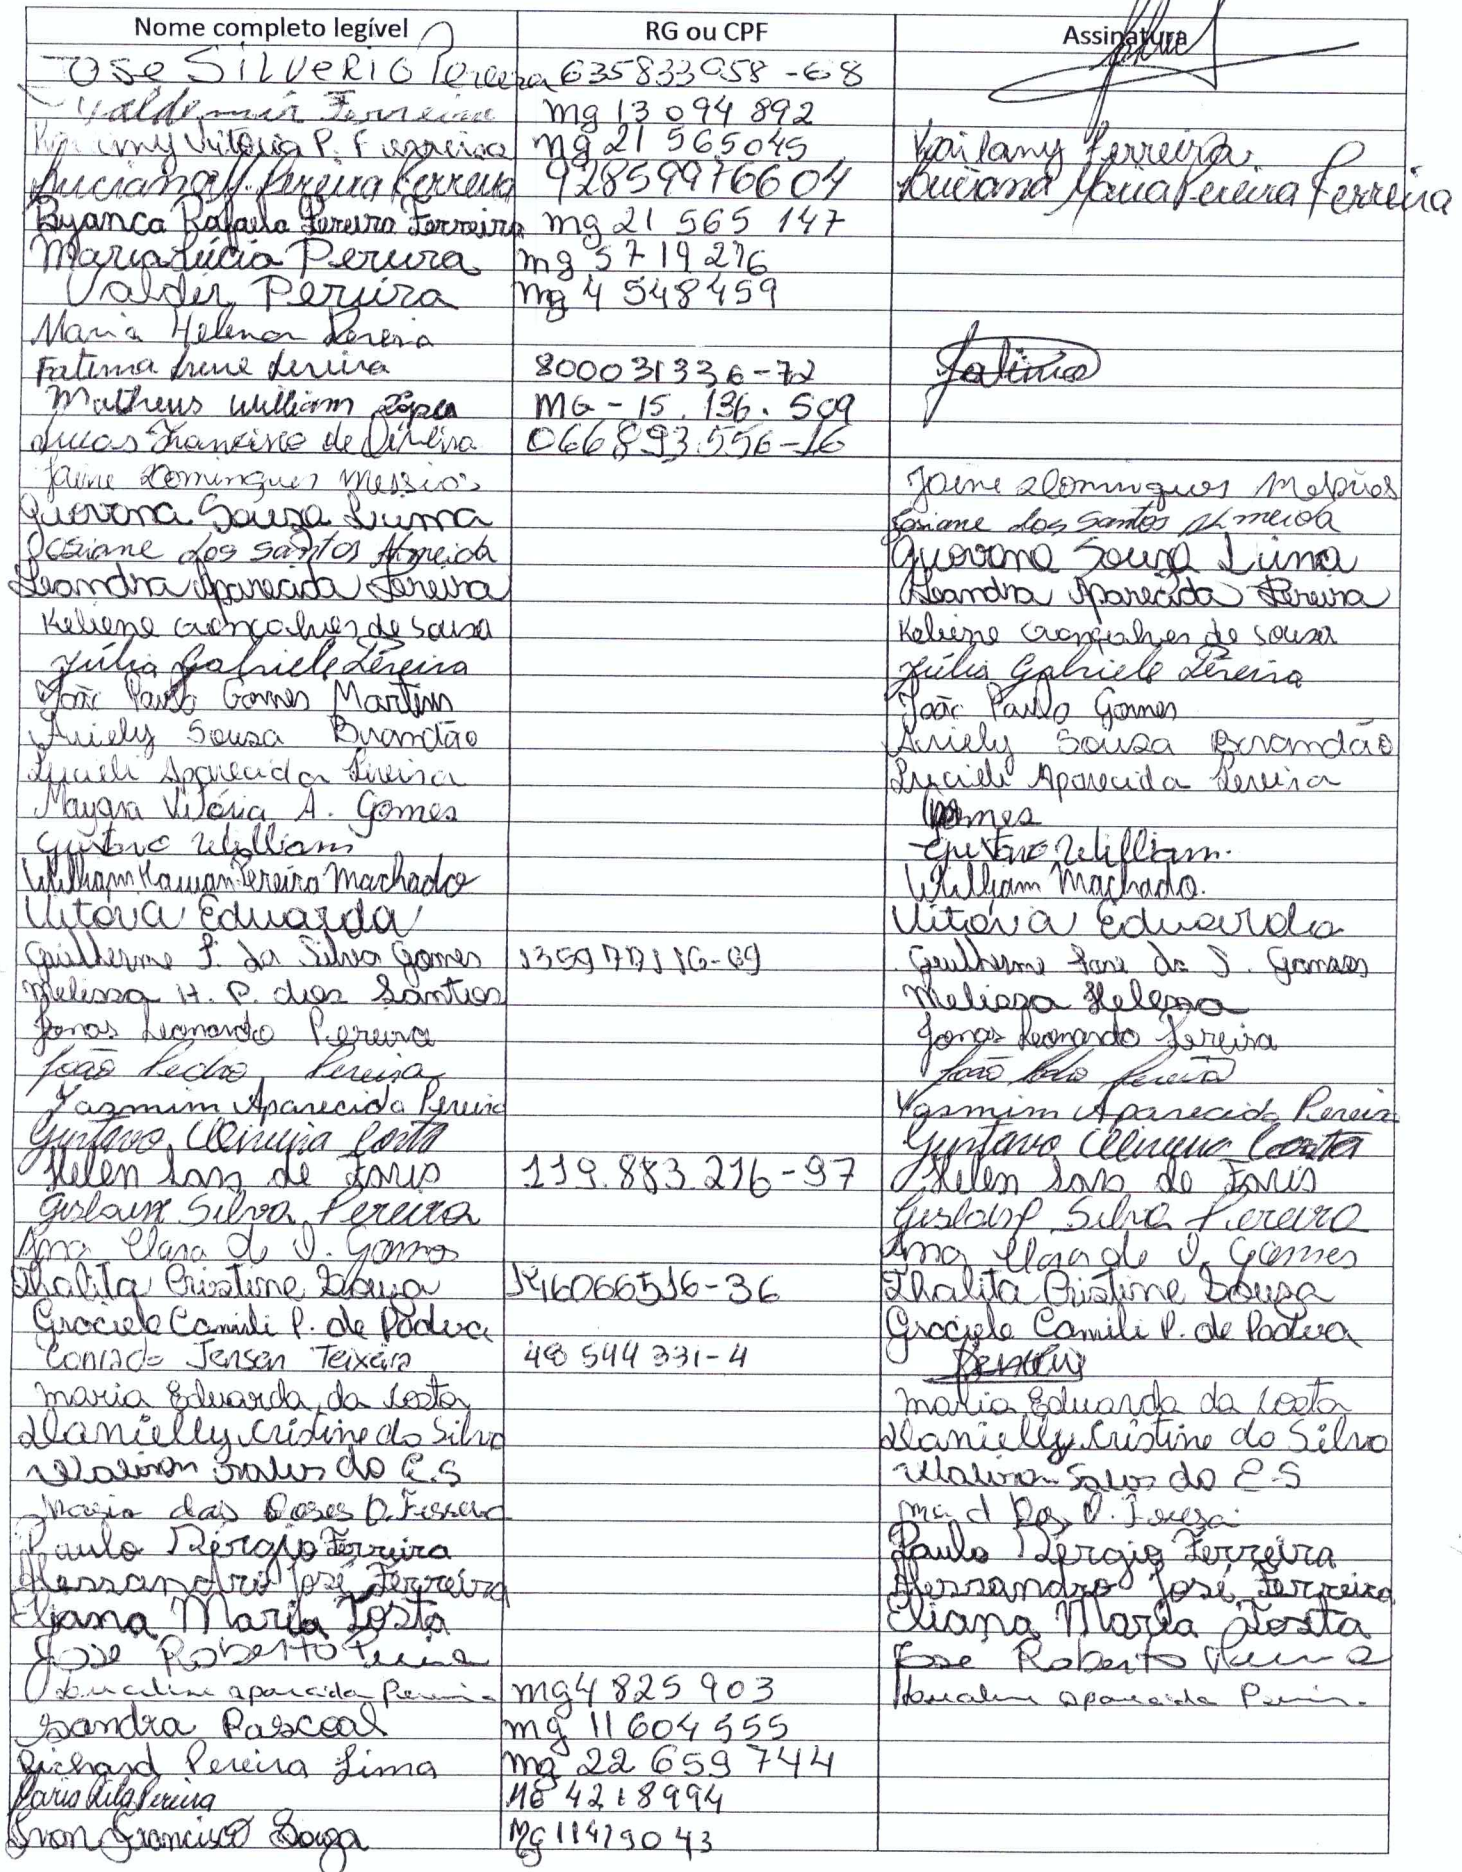 Nome completo legível RG ou CPF Assinatura
Jose SILVERIO Pereira 635833958-68
Valdemir Ferreira mg 13 094 892
Vitória P. Ferreira mg 21 565045 Ferreira
Luciana M. Pereira Ferreira 92859976604 Luciana Maria Pereira Ferreira
Byanca Rafaela Pereira Ferreira mg 21 565 147
Maria Lúcia Pereira mg 5719276
Valdir Pereira mg 4 548459
Maria Helena Pereira
Fatima Irene Pereira 800031336-72 Fatima
Matheus William MG-15.136.509
Lucas Francisco de Oliveira 066893.556-16
Jaine Domingues Messias Jaine Domingues Messias
Giovana Souza Lima Josiane dos Santos Almeida
Josiane dos santos Almeida Giovana Souza Lima
Leandra Aparecida Pereira Leandra Aparecida Pereira
Keliene Gonçalves de Sousa Keliene Gonçalves de Sousa
Júlia Gabriele Pereira Júlia Gabriele Pereira
João Paulo Gomes Martins João Paulo Gomes
Ariely Sousa Brandão Ariely Sousa Brandão
Lucieli Aparecida Pereira Lucieli Aparecida Pereira
Mayara Vitória A. Gomes Gomes
Gustavo William Gustavo William.
William Kauan Pereira Machado William Machado.
Vitória Eduarda Vitória Eduarda
Guilherme J. da Silva Gomes Guilherme José da S. Gomes
Melissa H. P. dos Santos Melissa Helena
Jonas Leonardo Pereira Jonas Leonardo Pereira
João Pedro Pereira João Pedro Pereira
Yasmim Aparecida Pereira Yasmim Aparecida Pereira
Gustavo Oliveira Costa Gustavo Oliveira Costa
Helen de Faris 119.883.216-97 Helen de Faris
Gislaine Silva Pereira Gislaine Silva Pereira
Ana Clara de O. Gomes Ana Clara de O. Gomes
Thalita Cristine Souza 16066516-36 Thalita Cristine Souza
Graciele Camili P. de Padua Graciele Camili P. de Padua
Conrado Jensen Teixeira 48 544 331-4
maria Eduarda da Costa maria Eduarda da Costa
Danielly Cristine da Silva Danielly Cristine da Silva
do E.S do E.S
Maria das Dores D.
Paulo Sérgio Ferreira Paulo Sérgio Ferreira
Alessandro José Ferreira Alessandro José Ferreira
Eliana Maria Tosta Eliana Maria Tosta
Jose Roberto Pereira Jose Roberto Pereira
aparecida Pereira mg4 825 903 aparecida Pereira
Sandra Pascoal mg 11604555
Richard Pereira Lima mg 22 659 744
Maria Rita Pereira MG 4218994
Ivan Francisco Souza Mg 11429043